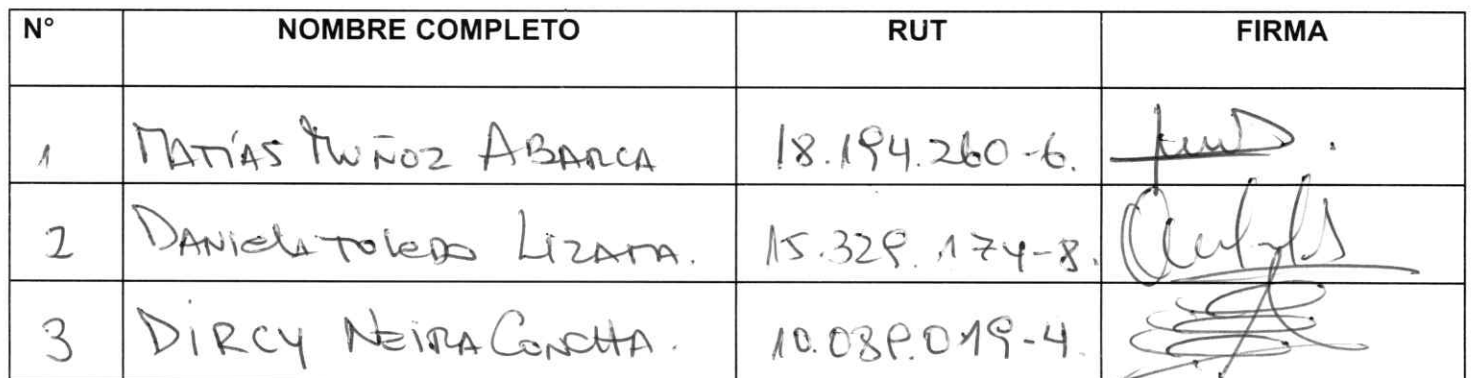 N° NOMBRE COMPLETO RUT FIRMA
1 MATÍAS MUÑOZ ABARCA 18.194.260-6.
2 DANIELA TOLEDO LIZAMA. 15.329.174-8.
3 DIRCY NEIRA CONCHA. 10.039.019-4